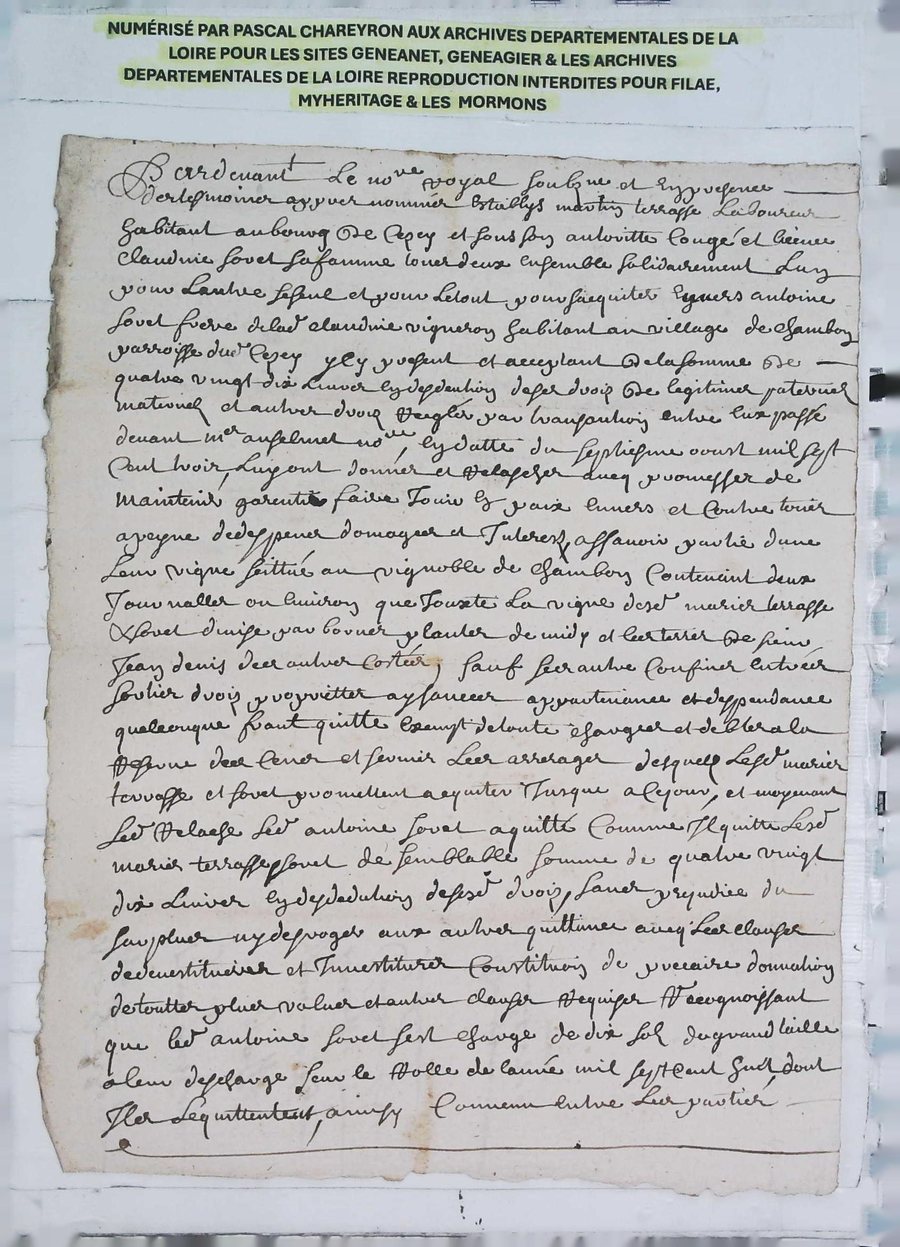 NUMÉRISÉ PAR PASCAL CHAREYRON AUX ARCHIVES DEPARTEMENTALES DE LA
LOIRE POUR LES SITES GENEANET, GENEAGIER & LES ARCHIVES
DEPARTEMENTALES DE LA LOIRE REPRODUCTION INTERDITES POUR FILAE,
MYHERITAGE & LES MORMONS
Pardevant Le no.re royal soubz.ne et En presence
des tesmoins appres nommés Establys martin terrasse Laboureur
habitant au bourg de Cezey et sous son autoritte Congé et licence
Claudine sovet sa famme tous deux Ensemble solidairement Lun
pour Lautre seseul et pour Letout pour sacquiter Envers antoine
sovet frere delad. claudine vigneron habitant au village de chambon
parroisse dud. Cezey yly present et acceptant de la somme de
quatre vingt dix Livres En desduction deses droits de legitimes paternel
maternel et autres droits Reglés par transaction entre Eux passé
devant m.re anselmet no.re En datte du septiesme aoust mil sept
Cent trois, Luy ont donnés et Relaschés avecq promesses de
maintenir garentir faire Jouir En paix Envers et Contre tous
a peyne de despens domages et Interest, assavoir partie dune
Leur vigne scittué au vignoble de chambon Contenant deux
Journalles ou Environ que Jouxte La vigne desd. maries terrasse
& sovet divise par bornes plantés de midy et les terres de sieur
Jean denis des autres Costés, sauf ses autre Confines Entrées
sorties droits proprietter aysances appartenance et deppendance
qualconque franc quitte Exempt de toute charges et debtes a la
Reserve des Cens et servis Les arrerages desquels Lesd. maries
terrasse et sovet promettent acquiter Jusque a Cejour, et moyenant
Led. Relache Led. antoine sovet a quitté Comme Il quitte Lesd.
maries terrasse & sovet de semblable somme de quatre vingt
dix Livres En desduction desesd. droits, sans prejudice du
surplus ny desroger aux autres quittance avecq Les clauses
de devestitures et Investitures Constitution de precaire donnation
de touttes plus values et autres clauses Requises Recognoissant
que led. antoine sovet sest charge de dix sols de grand taille
a leur descharge sur le Rolle de lanné mil sept Cent huit, dont
Ils Lequittentent, ainsy Convenu entre Les parties